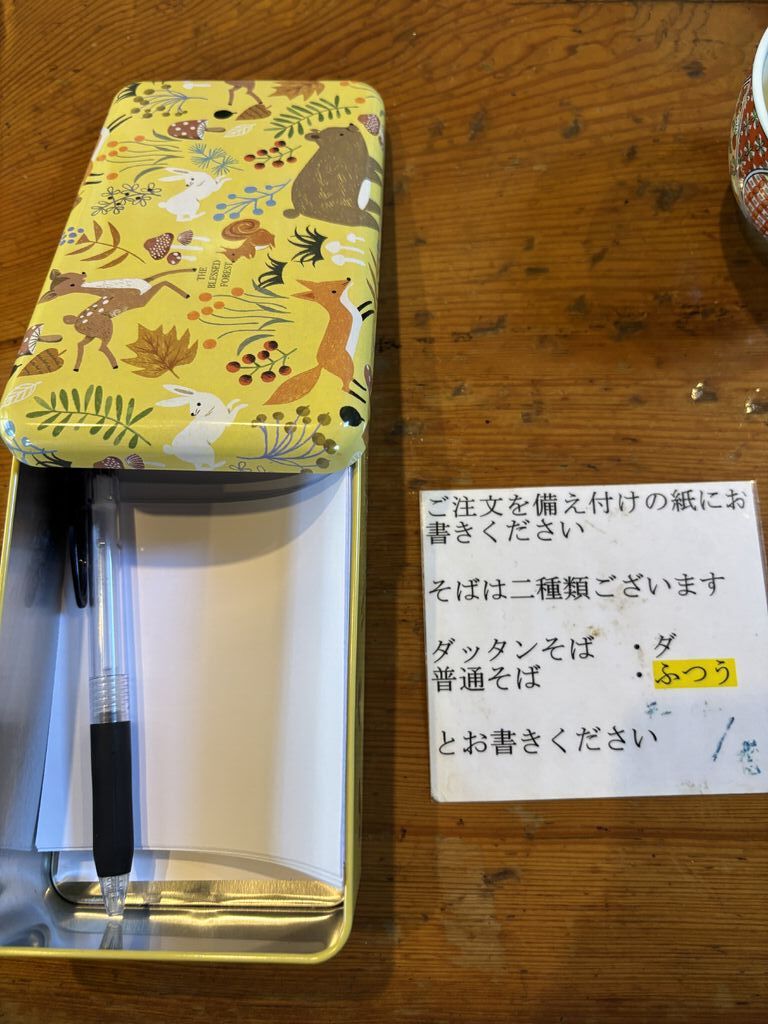 THE
BLESSED
FOREST
ご注文を備え付けの紙にお
書きください
そばは二種類ございます
ダッタンそば ・ダ
普通そば ・ふつう
とお書きください